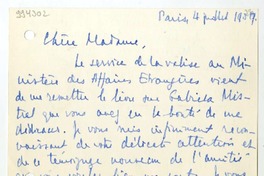 994302
Paris, 4 juillet 1957.
Chère Madame,
Le service de la valise au Mi-
nistère des Affaires Etrangères vient
de me remettre le livre sur Gabriela Mis-
tral que vous avez eu la bonté de me
dédicacer. Je vous suis infiniment recon-
naissant de votre délicate attention et
de ce témoignage nouveau de l'amitié